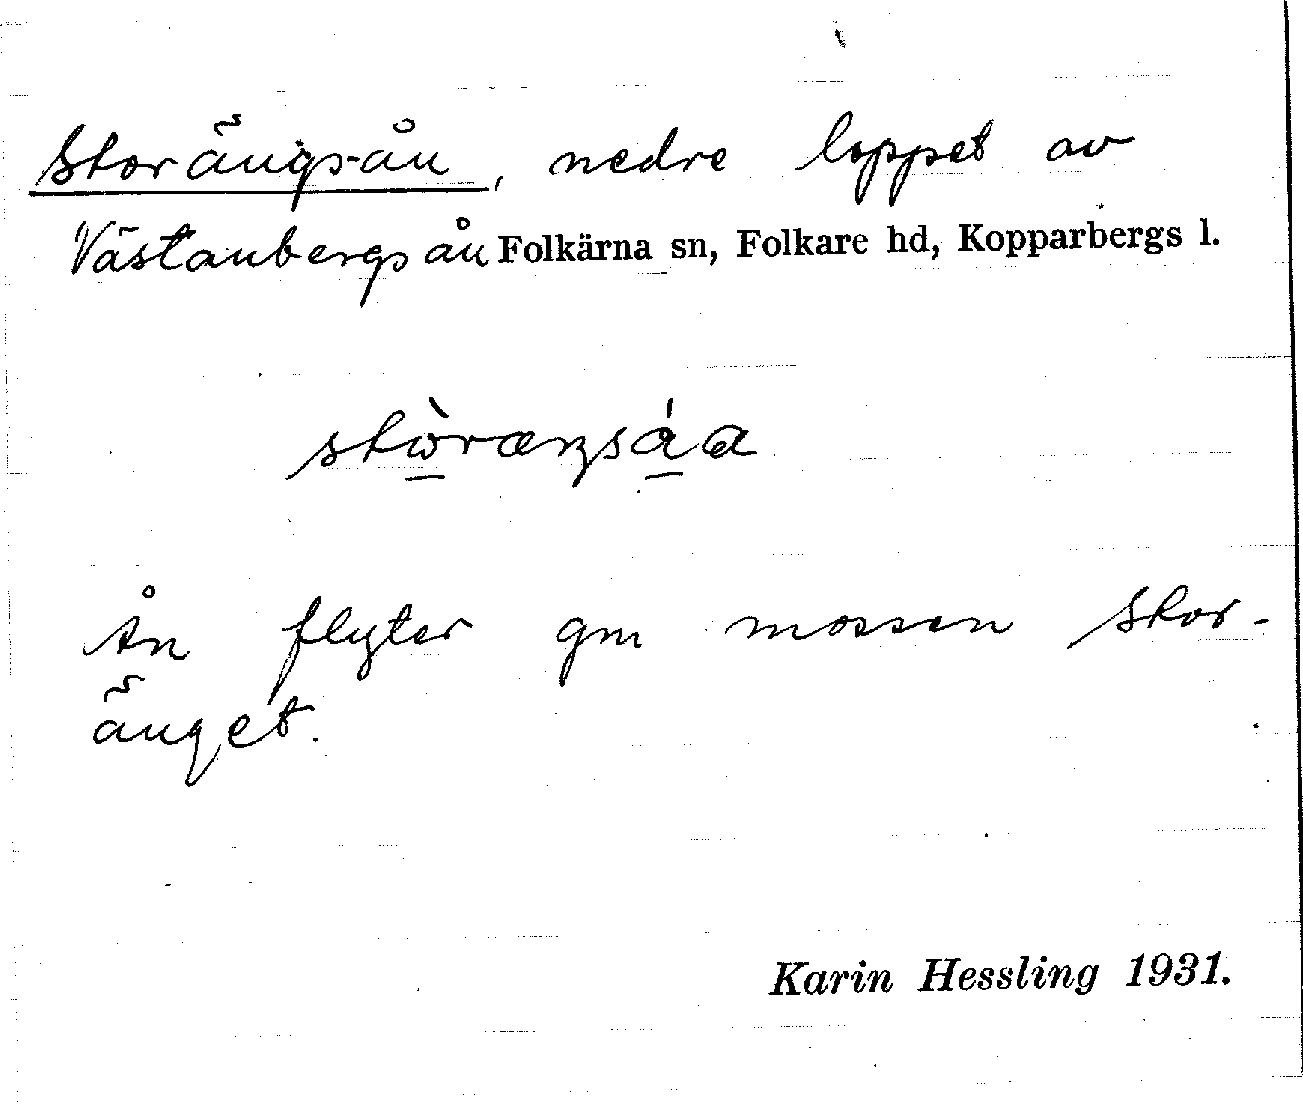 Storängsån, nedre loppet av
Västanbergsån Folkärna sn, Folkare hd, Kopparbergs l.
stòræŋsáa
Ån flyter gm mossen Stor-
änget.
Karin Hessling 1931.